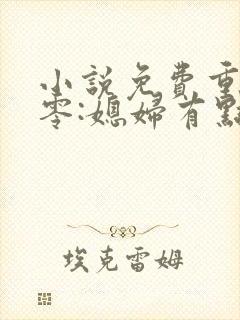 小說免費重
零:媳婦有點
埃克雷姆